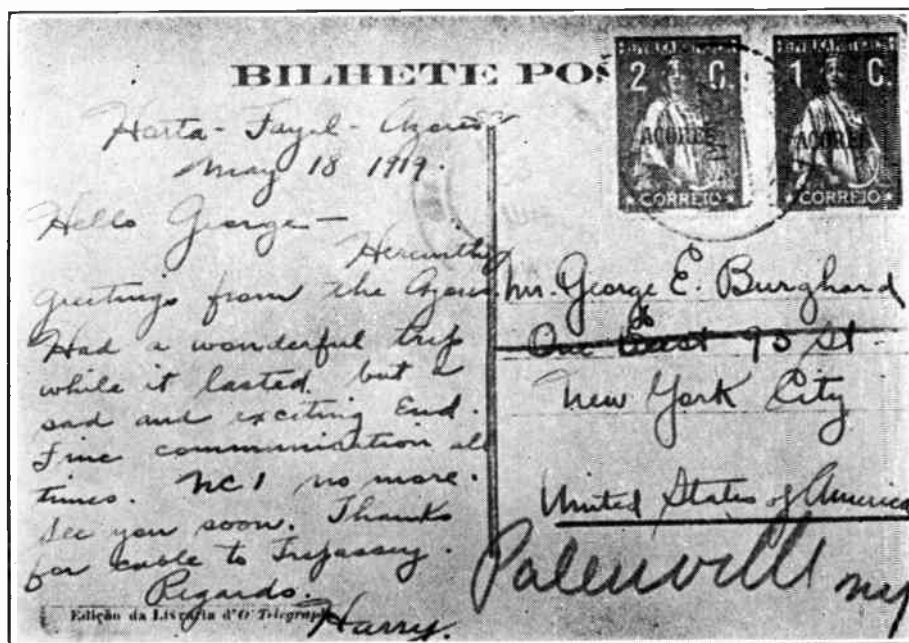 BILHETE POS
Horta - Fayal - Azores
May 18 1919.
Hello George -
Herewith
greetings from the Azores.
Had a wonderful trip
while it lasted, but a
sad and exciting End.
Fine communication all
times. NC1 no more.
See you soon. Thanks
for cable to Trepassey.
Regards.
Harry.
Edição da Livraria d'O Telegrapho
2 C.
AÇORES
CORREIO
1 C.
AÇORES
CORREIO
Mr. George E. Burghard
One East 93 St.
New York City
United States of America
Palenville NY